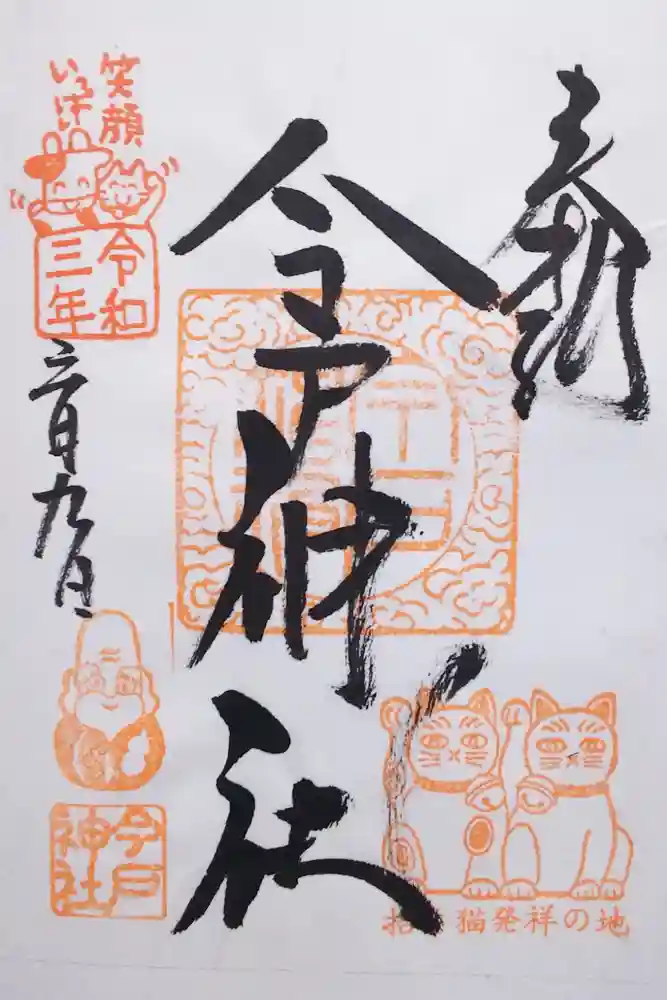 奉拝
今戸神社
笑顔
いっぱい
令和
三年
月九日
今戸
神社
招き猫発祥の地